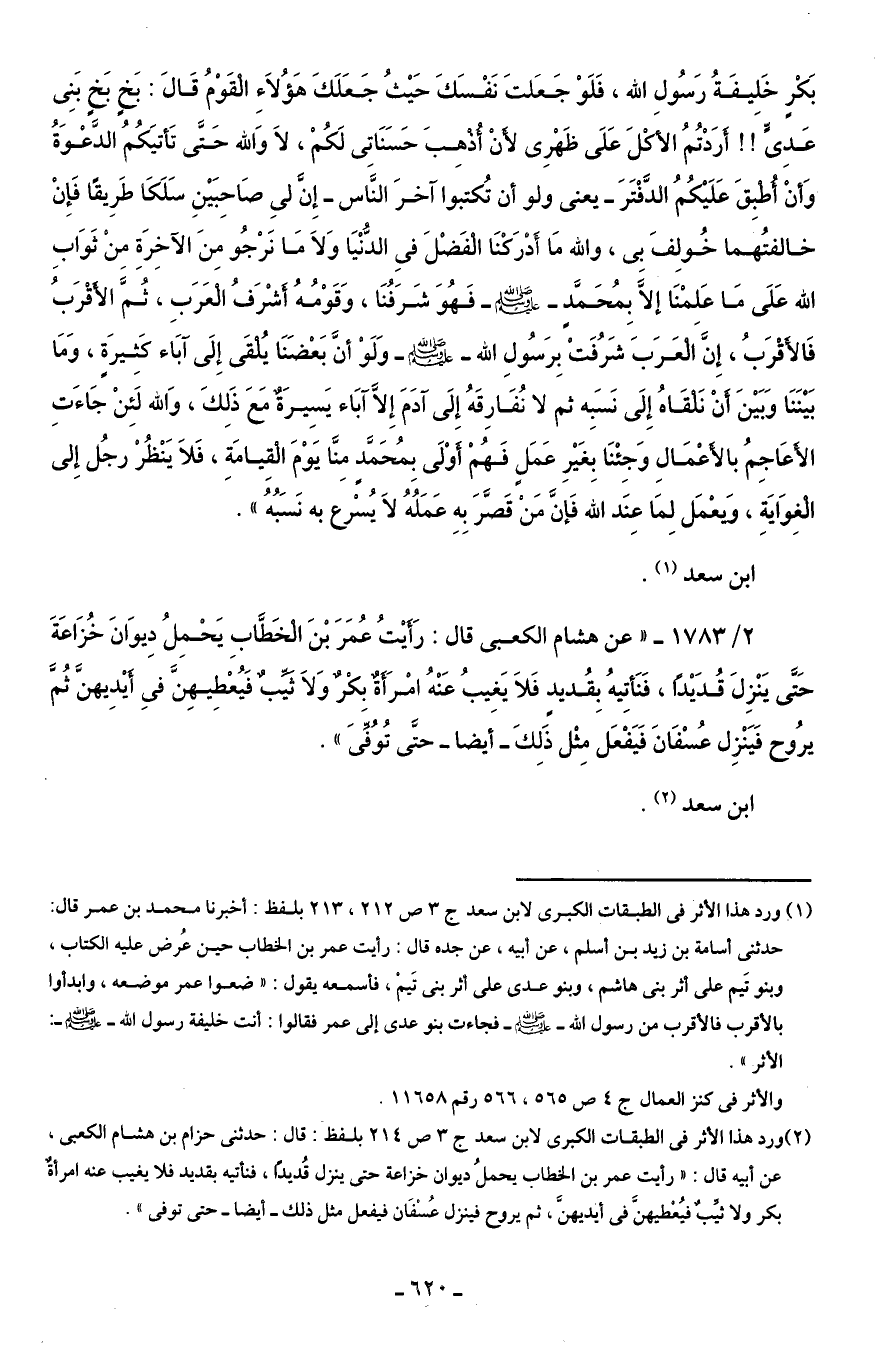 بَكْرٍ خَلِيفَةُ رَسُولِ الله ، فَلَوْ جَعَلتَ نَفْسَكَ حَيْثُ جَعَلَكَ هَؤُلَاءِ القَوْمُ قَالَ : بَخٍ بَخٍ بَنِى
عَدِىٍّ !! أَرَدْتُمُ الأَكْلَ عَلَى ظَهْرِى لأَنْ أُذْهِبَ حَسَنَاتِى لَكُمْ ، لاَ وَالله حَتَّى تَأتِيَكُمُ الدَّعْوَةُ
وَأَنْ أُطْبِقَ عَلَيْكُمُ الدَّفْتَرَ ـ يعنى ولو أن تُكتبوا آخرَ النَّاس ـ إِنَّ لِى صَاحِبَيْنِ سَلَكَا طَرِيقًا فَإِنْ
خَالفتُهما خُولِفَ بِى ، والله مَا أَدْرَكْنَا الْفَضْلَ فِى الدُّنْيَا وَلاَ مَا نَرْجُو مِنَ الآخِرَةِ مِنْ ثَوَابِ
الله عَلَى مَا عَلِمْنَا إِلاَّ بِمُحَمَّدٍ ـ ﷺ ـ فَهُوَ شَرَفُنَا ، وَقَوْمُهُ أَشْرَفُ العَرَبِ ، ثُمَّ الأَقْرَبُ
فَالأَقْرَبُ ، إِنَّ الْعَرَبَ شَرُفَتْ بِرَسُولِ الله ـ ﷺ ـ وَلَوْ أنَّ بَعْضَنَا يُلْقَى إِلَى آبَاءٍ كَثِيرَةٍ ، وَمَا
بَيْنَنَا وَبَيْنَ أَنْ نَلْقَاهُ إِلَى نَسَبِهِ ثم لا نُفَارِقَهُ إِلَى آدَمَ إِلاَّ آبَاء يَسِيرَةٌ مَعَ ذَلِكَ ، وَالله لَئِنْ جَاءَتِ
الأَعَاجِمُ بالأَعْمَالِ وَجِئْنَا بِغَيْرِ عَمَلٍ فَهُمْ أَوْلَى بِمُحَمَّدٍ مِنَّا يَوْمَ الْقِيَامَةِ ، فَلاَ يَنْظُرْ رجلُ إلى
الْغِوَايَةِ ، وَيَعْمَل لِمَا عِنَدِ الله فَإِنَّ مَنْ قَصَّرَ بِهِ عَمَلُهُ لاَ يُسْرِع به نَسَبُهُ » .
ابن سعد (١) .
٢/ ١٧٨٣ ـ « عن هشام الكعبى قال : رَأَيْتُ عُمَرَ بْنَ الخَطَّابِ يَحْمِلُ دِيوَانَ خُزَاعَةَ
حَتَّى يَنْزِلَ قُدَيْدًا ، فَنَأتِيهُ بِقُديدٍ فَلاَ يَغِيبُ عَنْهُ امْرَأَةٌ بِكْرٌ وَلاَ ثَيِّبٌ فَيُعْطِيهِنَّ فِى أَيْدِيهِنَّ ثُمَّ
يرُوح فَيَنْزِل عُسْفَانَ فَيَفْعَل مِثْل ذَلِكَ ـ أيضا ـ حتَّى تُوُفِّىَ » .
ابن سعد (٢) .
(١) ورد هذا الأثر فى الطبقات الكبرى لابن سعد ج ٣ ص ٢١٢ ، ٢١٣ بلفظ : أخبرنا محمد بن عمر قال:
حدثنى أسامة بن زيد بن أسلم ، عن أبيه ، عن جده قال : رأيت عمر بن الخطاب حين عُرض عليه الكتاب ،
وبنو تَيم على أثر بنى هاشم ، وبنو عدى على أثر بنى تَيمْ ، فأسمعه يقول : « ضعوا عمر موضعه ، وابدأوا
بالأقرب فالأقرب من رسول الله ـ ﷺ ـ فجاءت بنو عدى إلى عمر فقالوا : أنت خليفة رسول الله ـ ﷺ ـ:
الأثر » .
والأثر فى كنز العمال ج ٤ ص ٥٦٥ ، ٥٦٦ رقم ١١٦٥٨ .
(٢)ورد هذا الأثر فى الطبقات الكبرى لابن سعد ج ٣ ص ٢١٤ بلفظ : قال : حدثنى حزام بن هشام الكعبى ،
عن أبيه قال : « رأيت عمر بن الخطاب يحملُ ديوان خزاعة حتى ينزل قُديدًا ، فنأتيه بقديد فلا يغيب عنه امرأةٌ
بكر ولا ثيِّبٌ فيُعْطيهنَّ فى أيديهنَّ ، ثم يروح فينزل عُسْفَان فيفعل مثل ذلك ـ أيضا ـ حتى توفى » .
ـ ٦٢٠ ـ